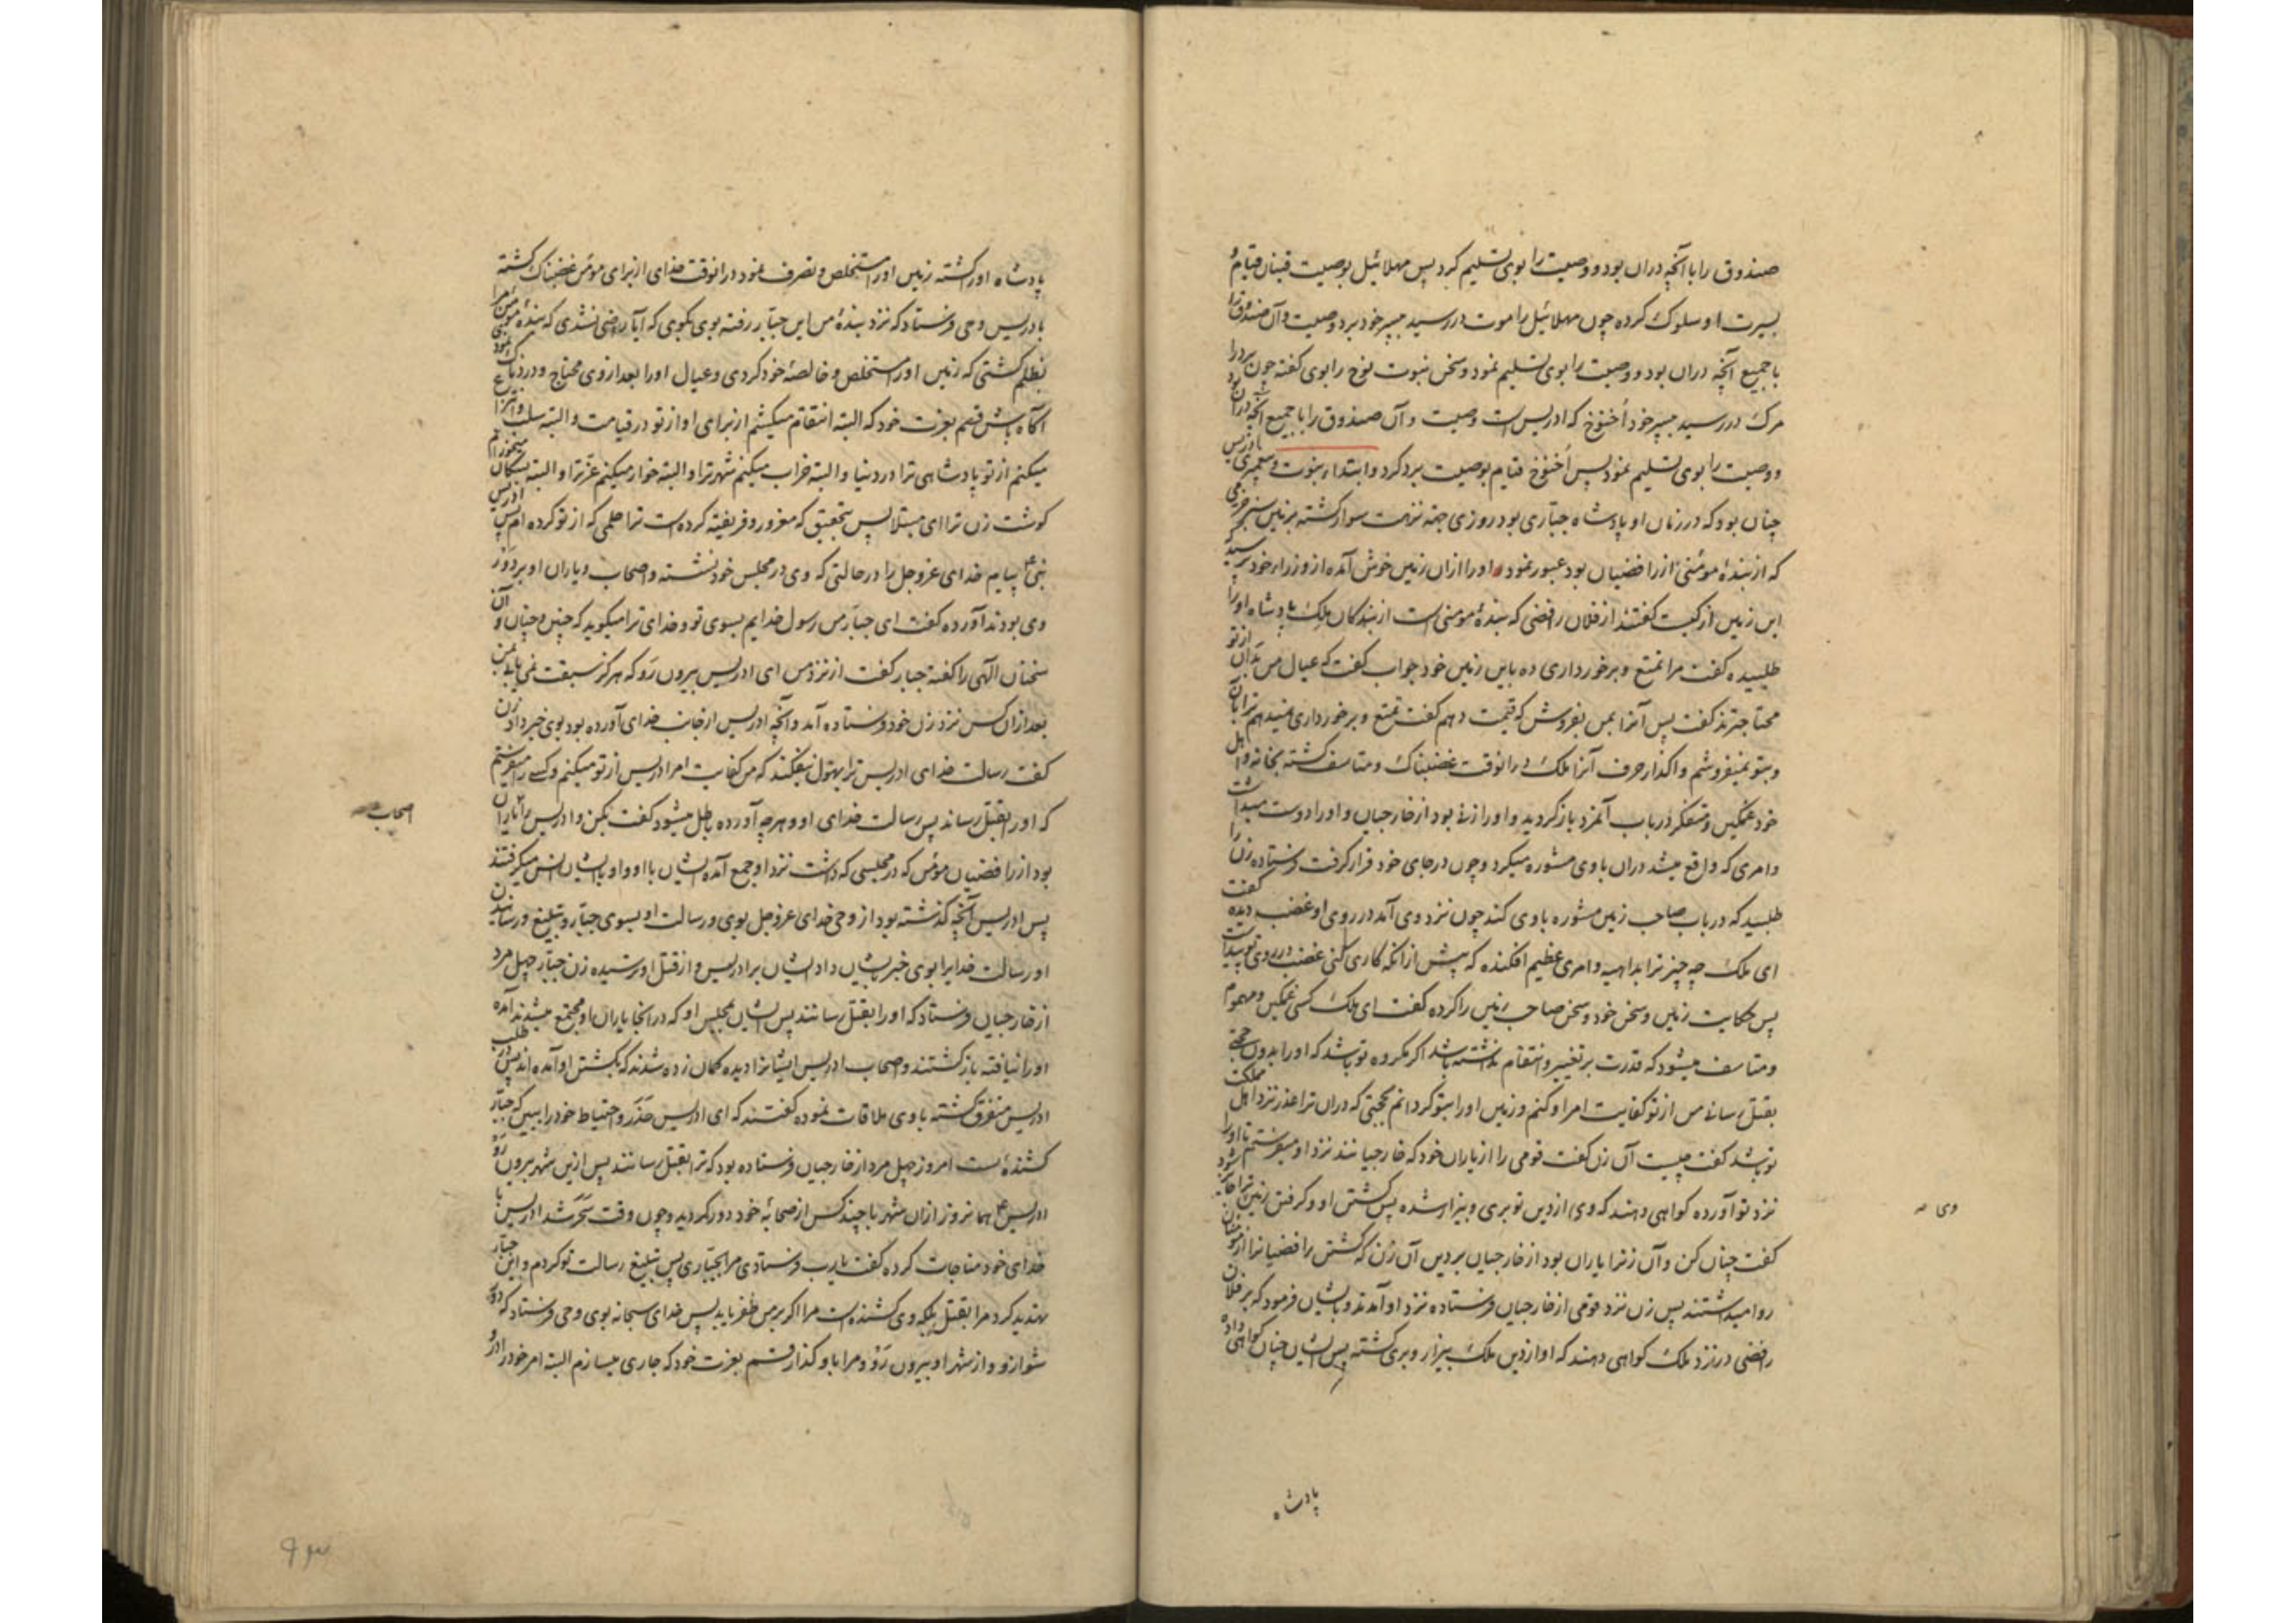 صندوق را با آنچه دران بود و وصیت را بوی تسلیم کرد پس مهلائیل بوصیت قینان قیام و
بسیرت او سلوک کرده چون مهلائیل را موت در رسید بپسر خود برد وصیت و آن صندوق را
با جمیع آنچه دران بود و وصیت را بوی تسلیم نمود و سخن نبوت نوح را بوی گفته چون برد را
مرک در رسید بپسر خود أخنوخ که ادریس است وصیت و آن صندوق را با جمیع آنچه دران بود
و وصیت را بوی تسلیم نمود پس أخنوخ قیام بوصیت برد کرد و ابتداء نبوت و پیغمبری ادریس
چنان بود که در زمان او پادشاه جبّاری بود روزی جهة نزهت سوار گشته بزمین سبز خرمی
که از بندهٔ مؤمنی از رافضیان بود عبور نمود و او را ازان زمین خوش آمده از وزراء خود پرسید که
این زمین از کیست گفتند از فلان رافضی که بندهٔ مومنی است از بندکان ملک پادشاه او را
طلبیده گفت مرا تمتع و برخورداری ده باین زمین خود جواب گفت که عیال من بدان از تو
محتاجترند گفت پس آنرا بمن بفروش که قیمت دهم گفت تمتع و برخورداری نمیدهم ترا بآن
و بتو نمیفروشم واگذار حرف آنرا ملک درانوقت غضبناک و متاسف گشته بخانه و اهل
خود غمگین و متفکر در باب آنمرد بازگردید و او را زنی بود از خارجیان و او را دوست میداشت
و امری که واقع میشد دران باوی مشوره میکرد و چون در جای خود قرار گرفت فرستاده زن را
طلبید که در باب صاحب زمین مشوره باوی کند چون نزد وی آمد در روی او غضب دیده گفت
ای ملک چه چیز ترا بداهیه و امری عظیم افکنده که پیش ازانکه کاری کنی غضب در روی تو پیداست
پس حکایت زمین و سخن خود و سخن صاحب زمین را کرده گفت ای ملک کسی غمگین و مهموم
و متاسف میشود که قدرت بر تغییر و انتقام نداشته باشد اگر مکروه تو باشد که او را بدون حجتی
بقتل رسانی من از تو کفایت امر او کنم و زمین او را بتو گردانم بحجتی که دران ترا عذر نزد اهل مملکت
تو باشد گفت چیست آن زن گفت قومی را از یاران خود که خارجیانند نزد او میفرستم تا او را
نزد تو آورده گواهی دهند که وی از دین تو بری و بیزار شده پس کشتن او و گرفتن زمین ترا جایز شود
گفت چنان کن و آن زنرا یاران بود از خارجیان بردین آن زن که کشتن رافضیانرا از مؤمنان
روا میداشتند پس زن نزد قومی از خارجیان فرستاده نزد او آمدند و بایشان فرمود که بر فلان
رافضی در نزد ملک گواهی دهند که او از دین ملک بیزار و بری گشته پس ایشان چنان گواهی داده
وی
پادشاه
پادشاه او را کشته زمین او را مستخلص و تصرف نمود درانوقت خدای از برای مؤمن غضبناک گشته
بادریس وحی فرستاد که نزد بندهٔ من این جبّار رفته بوی بگوی که آیا راضی نشدی که بندهٔ مؤمن مرا
بظلم کشتی که زمین او را مستخلص و خالصهٔ خود کردی و عیال او را بعد از وی محتاج و دردناک
آگاه باش قسم بعزت خود که البته انتقام میکشم از برای او از تو در قیامت و البته سلب و انتزاع
میکنم از تو پادشاهی ترا در دنیا و البته خراب میکنم شهر ترا و البته خوار میکنم عزّ ترا و البته بسگان میخورانم
گوشت زن ترا ای مبتلا پس بتحقیق که مغرور و فریفته کرده است ترا حلمی که از تو کرده ام پس ادریس
نبی ع پیام خدای عزوجل را در حالتی که وی در مجلس خود نشسته و اصحاب و یاران او بر دور
وی بودند آورده گفت ای جبّار من رسول خدایم بسوی تو و خدای ترا میگوید که چنین و چنان و آن
سخنان الهی را گفته جبار گفت از نزد من ای ادریس بیرون رَو که هرگز سبقت نمی یابد بمن
بعد ازان کس نزد زن خود فرستاده آمد و آنچه ادریس از جانب خدای آورده بود بوی خبر داد زن
گفت رسالت خدای ادریس ترا بهول نیفکند که من کفایت امر ادریس از تو میکنم و کسی را میفرستم
که او را بقتل رساند پس رسالت خدای او و هرچه آورده باطل میشود گفت بکن و ادریس را یاران
بود از رافضیان مؤمن که در مجلسی که داشت نزد او جمع آمده ایشان با او و او بایشان انس میگرفتند
پس ادریس آنچه گذشته بود از وحی خدای عزوجل بوی و رسالت او بسوی جبّار و تبلیغ و رسانیدن
او رسالت خدایرا بوی خبر بایشان داد ایشان بر ادریس و از قتل او ترسیده زن جبّار چهل مرد
از خارجیان فرستاد که او را بقتل رسانند پس ایشان بمجلس او که درانجا یاران او مجتمع میشدند آمده
او را نیافته بازگشتند و اصحاب ادریس ایشانرا دیده گمان زده شدند که بکشتن او آمده اند پس در طلب
ادریس متفرق گشته باوی ملاقات نموده گفتند که ای ادریس حَذَر و احتیاط خود را ببین که جبّار
کشندهٔ تست امروز چهل مرد از خارجیان فرستاده بود که ترا بقتل رسانند پس ازین شهر بیرون رَو
ادریس ع همانروز ازان شهر با چند کس از صحابهٔ خود دور گردید و چون وقت سَحَر شد ادریس با
خدای خود مناجات کرده گفت یارب فرستادی مرا بجبّاری پس تبلیغ رسالت تو کردم و این جبّار
تهدید کرد مرا بقتل بلکه وی کشنده است مرا اگر بر من ظفر یابد پس خدای سبحانه بوی وحی فرستاد که دور
شو ازو و از شهر او بیرون رَوْ و مرا باو گذار قسم بعزت خود که جاری میسازم البته امر خود را در
اصحاب